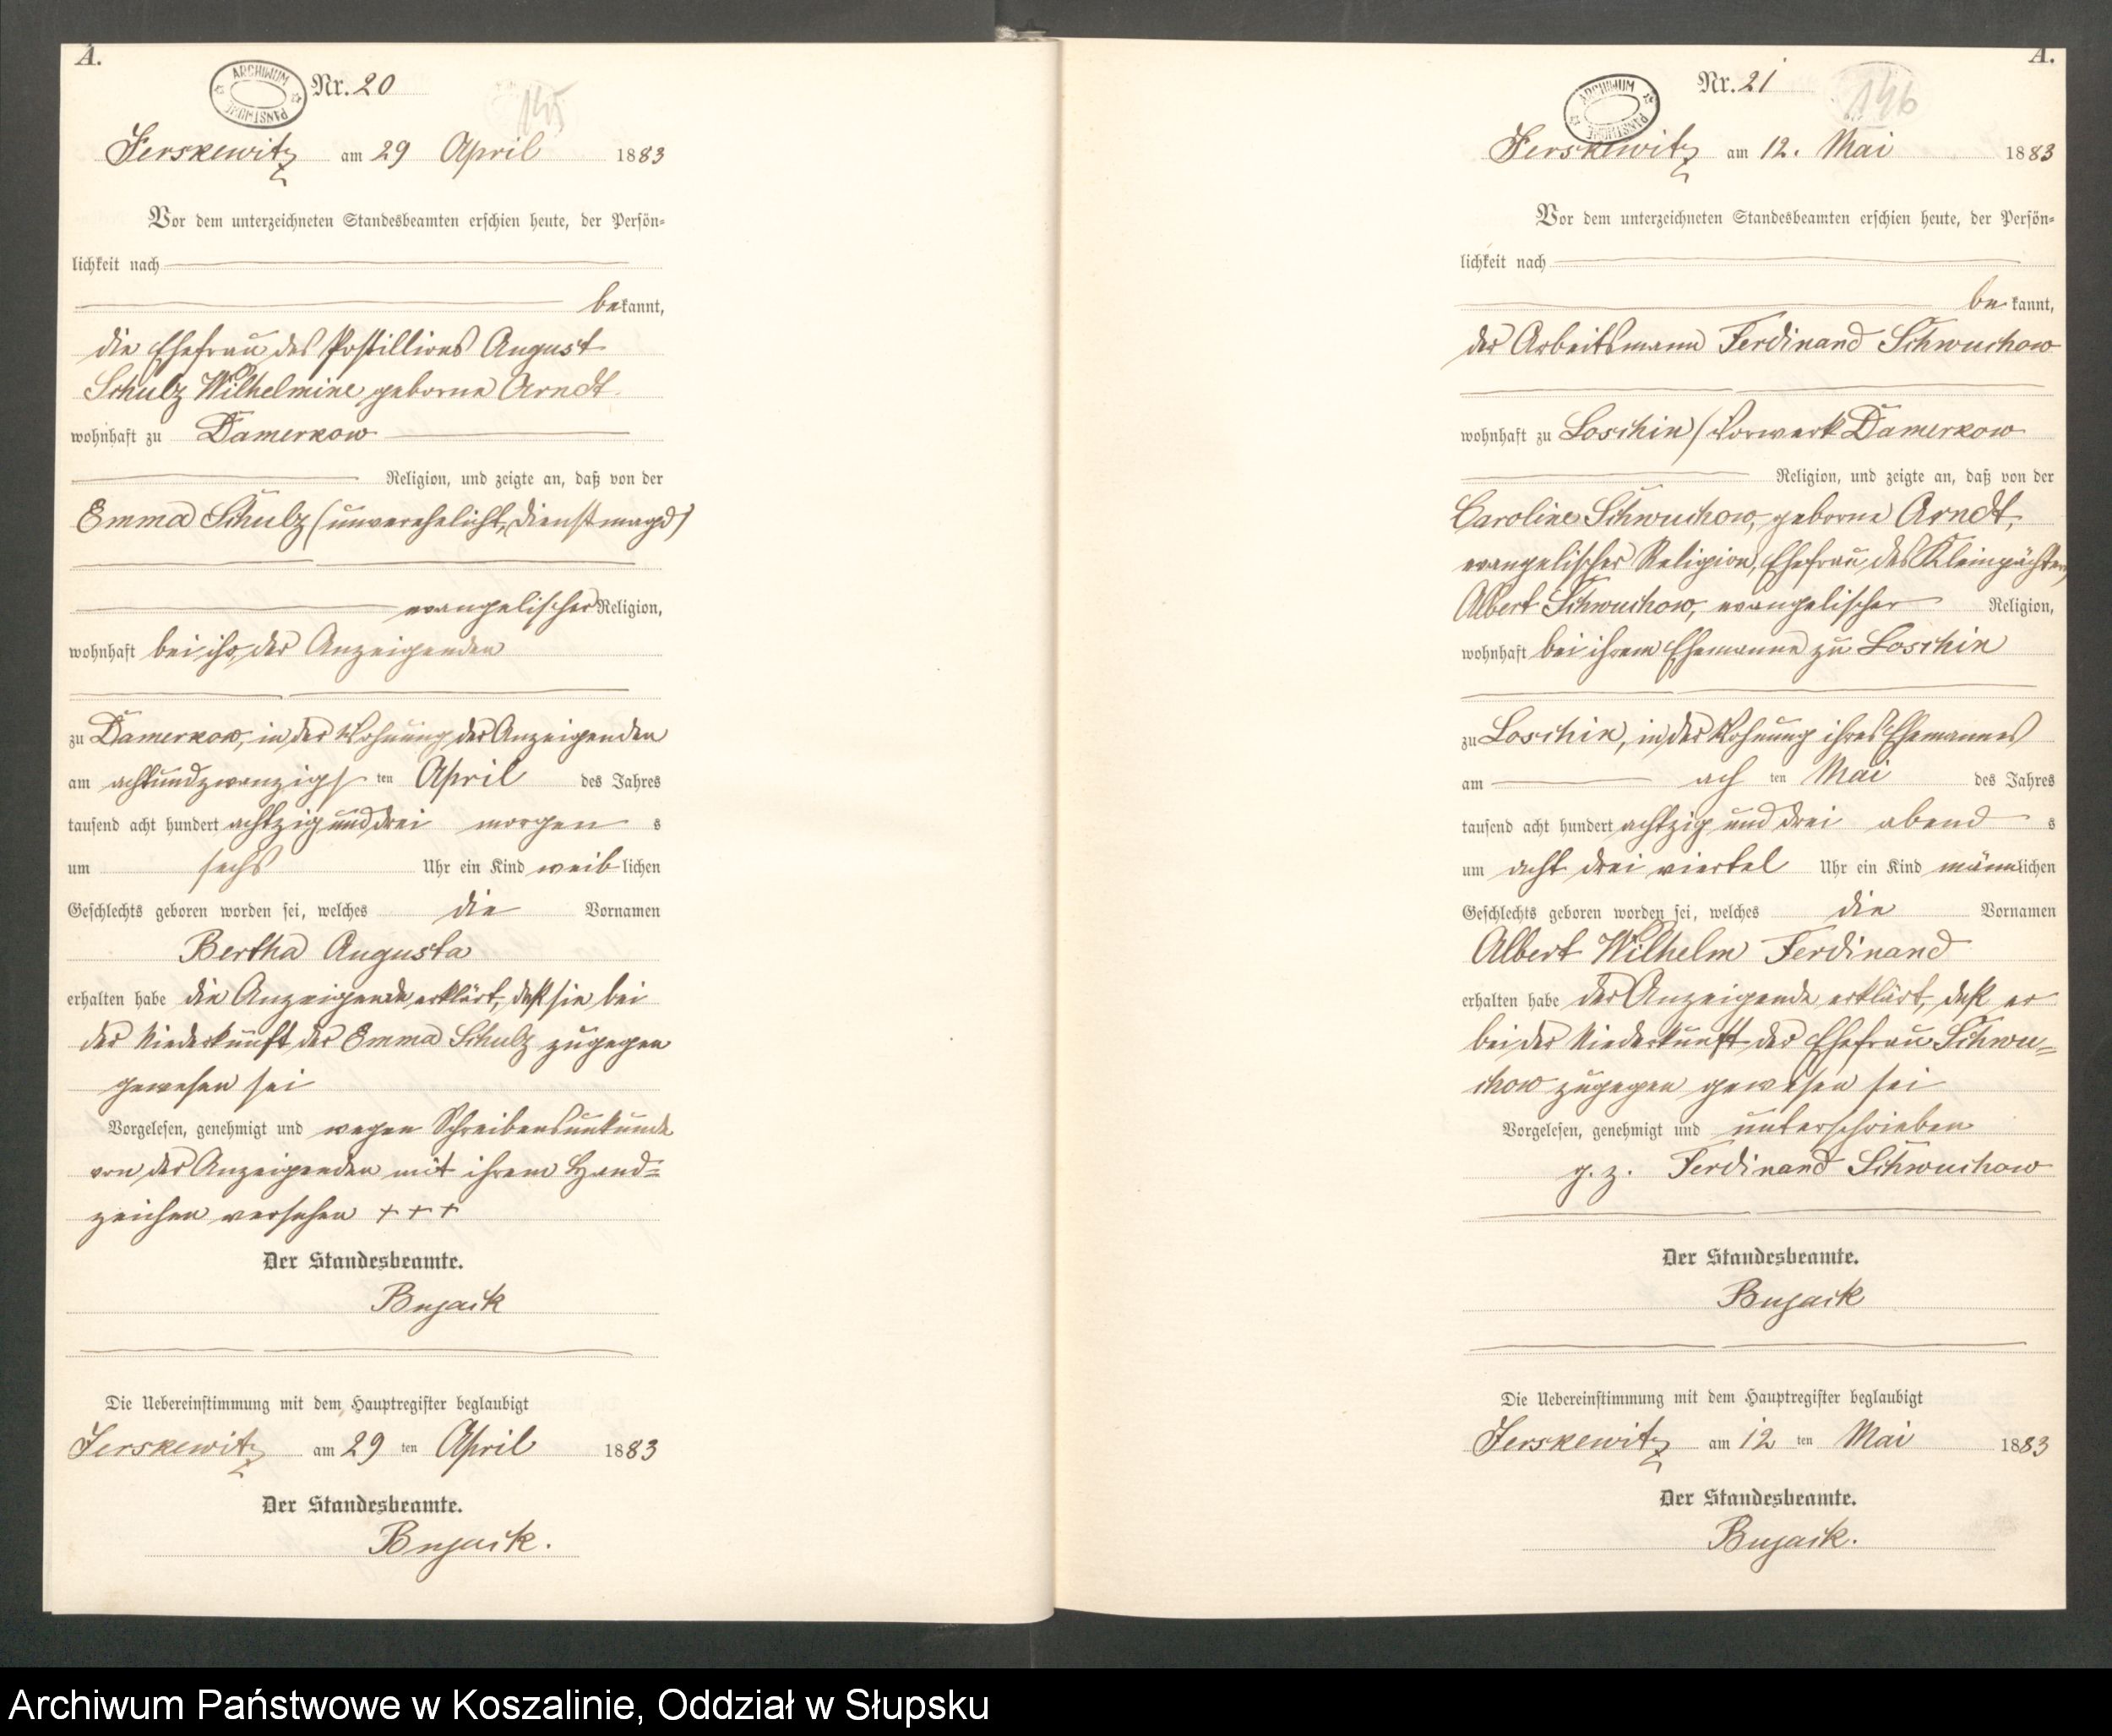 A.
ARCHIWUM PAŃSTWOWE
Nr. 20
145
Jerskewitz am 29 April 1883
Vor dem unterzeichneten Standesbeamten erschien heute, der Persön-
lichkeit nach
bekannt,
die Ehefrau des Postillions August
Schulz Wilhelmine geborne Arndt
wohnhaft zu Damerkow
Religion, und zeigte an, daß von der
Emma Schulz (unverehelicht, Dienstmagd)
evangelischer Religion,
wohnhaft bei ihr, der Anzeigenden
zu Damerkow, in der Wohnung der Anzeigenden
am achtundzwanzigs ten April des Jahres
tausend acht hundert achtzig und drei morgen s
um sechs Uhr ein Kind weib lichen
Geschlechts geboren worden sei, welches die Vornamen
Bertha Augusta
erhalten habe die Anzeigende erklärt, daß sie bei
der Niederkunft der Emma Schulz zugegen
gewesen sei
Vorgelesen, genehmigt und wegen Schreibensunkunde
von der Anzeigenden mit ihrem Hand=
zeichen versehen + + +
Der Standesbeamte.
Bujack
Die Uebereinstimmung mit dem Hauptregister beglaubigt
Jerskewitz am 29 ten April 1883
Der Standesbeamte.
Bujack.
A.
ARCHIWUM PAŃSTWOWE
Nr. 21
146
Jerskewitz am 12. Mai 1883
Vor dem unterzeichneten Standesbeamten erschien heute, der Persön-
lichkeit nach
be kannt,
der Arbeitsmann Ferdinand Schwuchow
wohnhaft zu Loschin / Vorwerk Damerkow
Religion, und zeigte an, daß von der
Caroline Schwuchow, geborne Arndt,
evangelischer Religion, Ehefrau des Kleinpächters
Albert Schwuchow, evangelischer Religion,
wohnhaft bei ihrem Ehemanne zu Loschin
zu Loschin, in der Wohnung ihres Ehemannes
am ach ten Mai des Jahres
tausend acht hundert achtzig und drei abend s
um acht drei viertel Uhr ein Kind männlichen
Geschlechts geboren worden sei, welches die Vornamen
Albert Wilhelm Ferdinand
erhalten habe der Anzeigende erklärt, daß er
bei der Niederkunft der Ehefrau Schwu=
chow zugegen gewesen sei
Vorgelesen, genehmigt und unterschrieben
g. z. Ferdinand Schwuchow
Der Standesbeamte.
Bujack
Die Uebereinstimmung mit dem Hauptregister beglaubigt
Jerskewitz am 12 ten Mai 1883
Der Standesbeamte.
Bujack.
Archiwum Państwowe w Koszalinie, Oddział w Słupsku